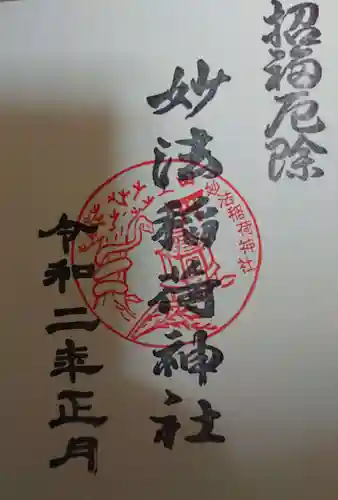 招福厄除
妙法稲荷神社
妙法稲荷神社
令和二年正月